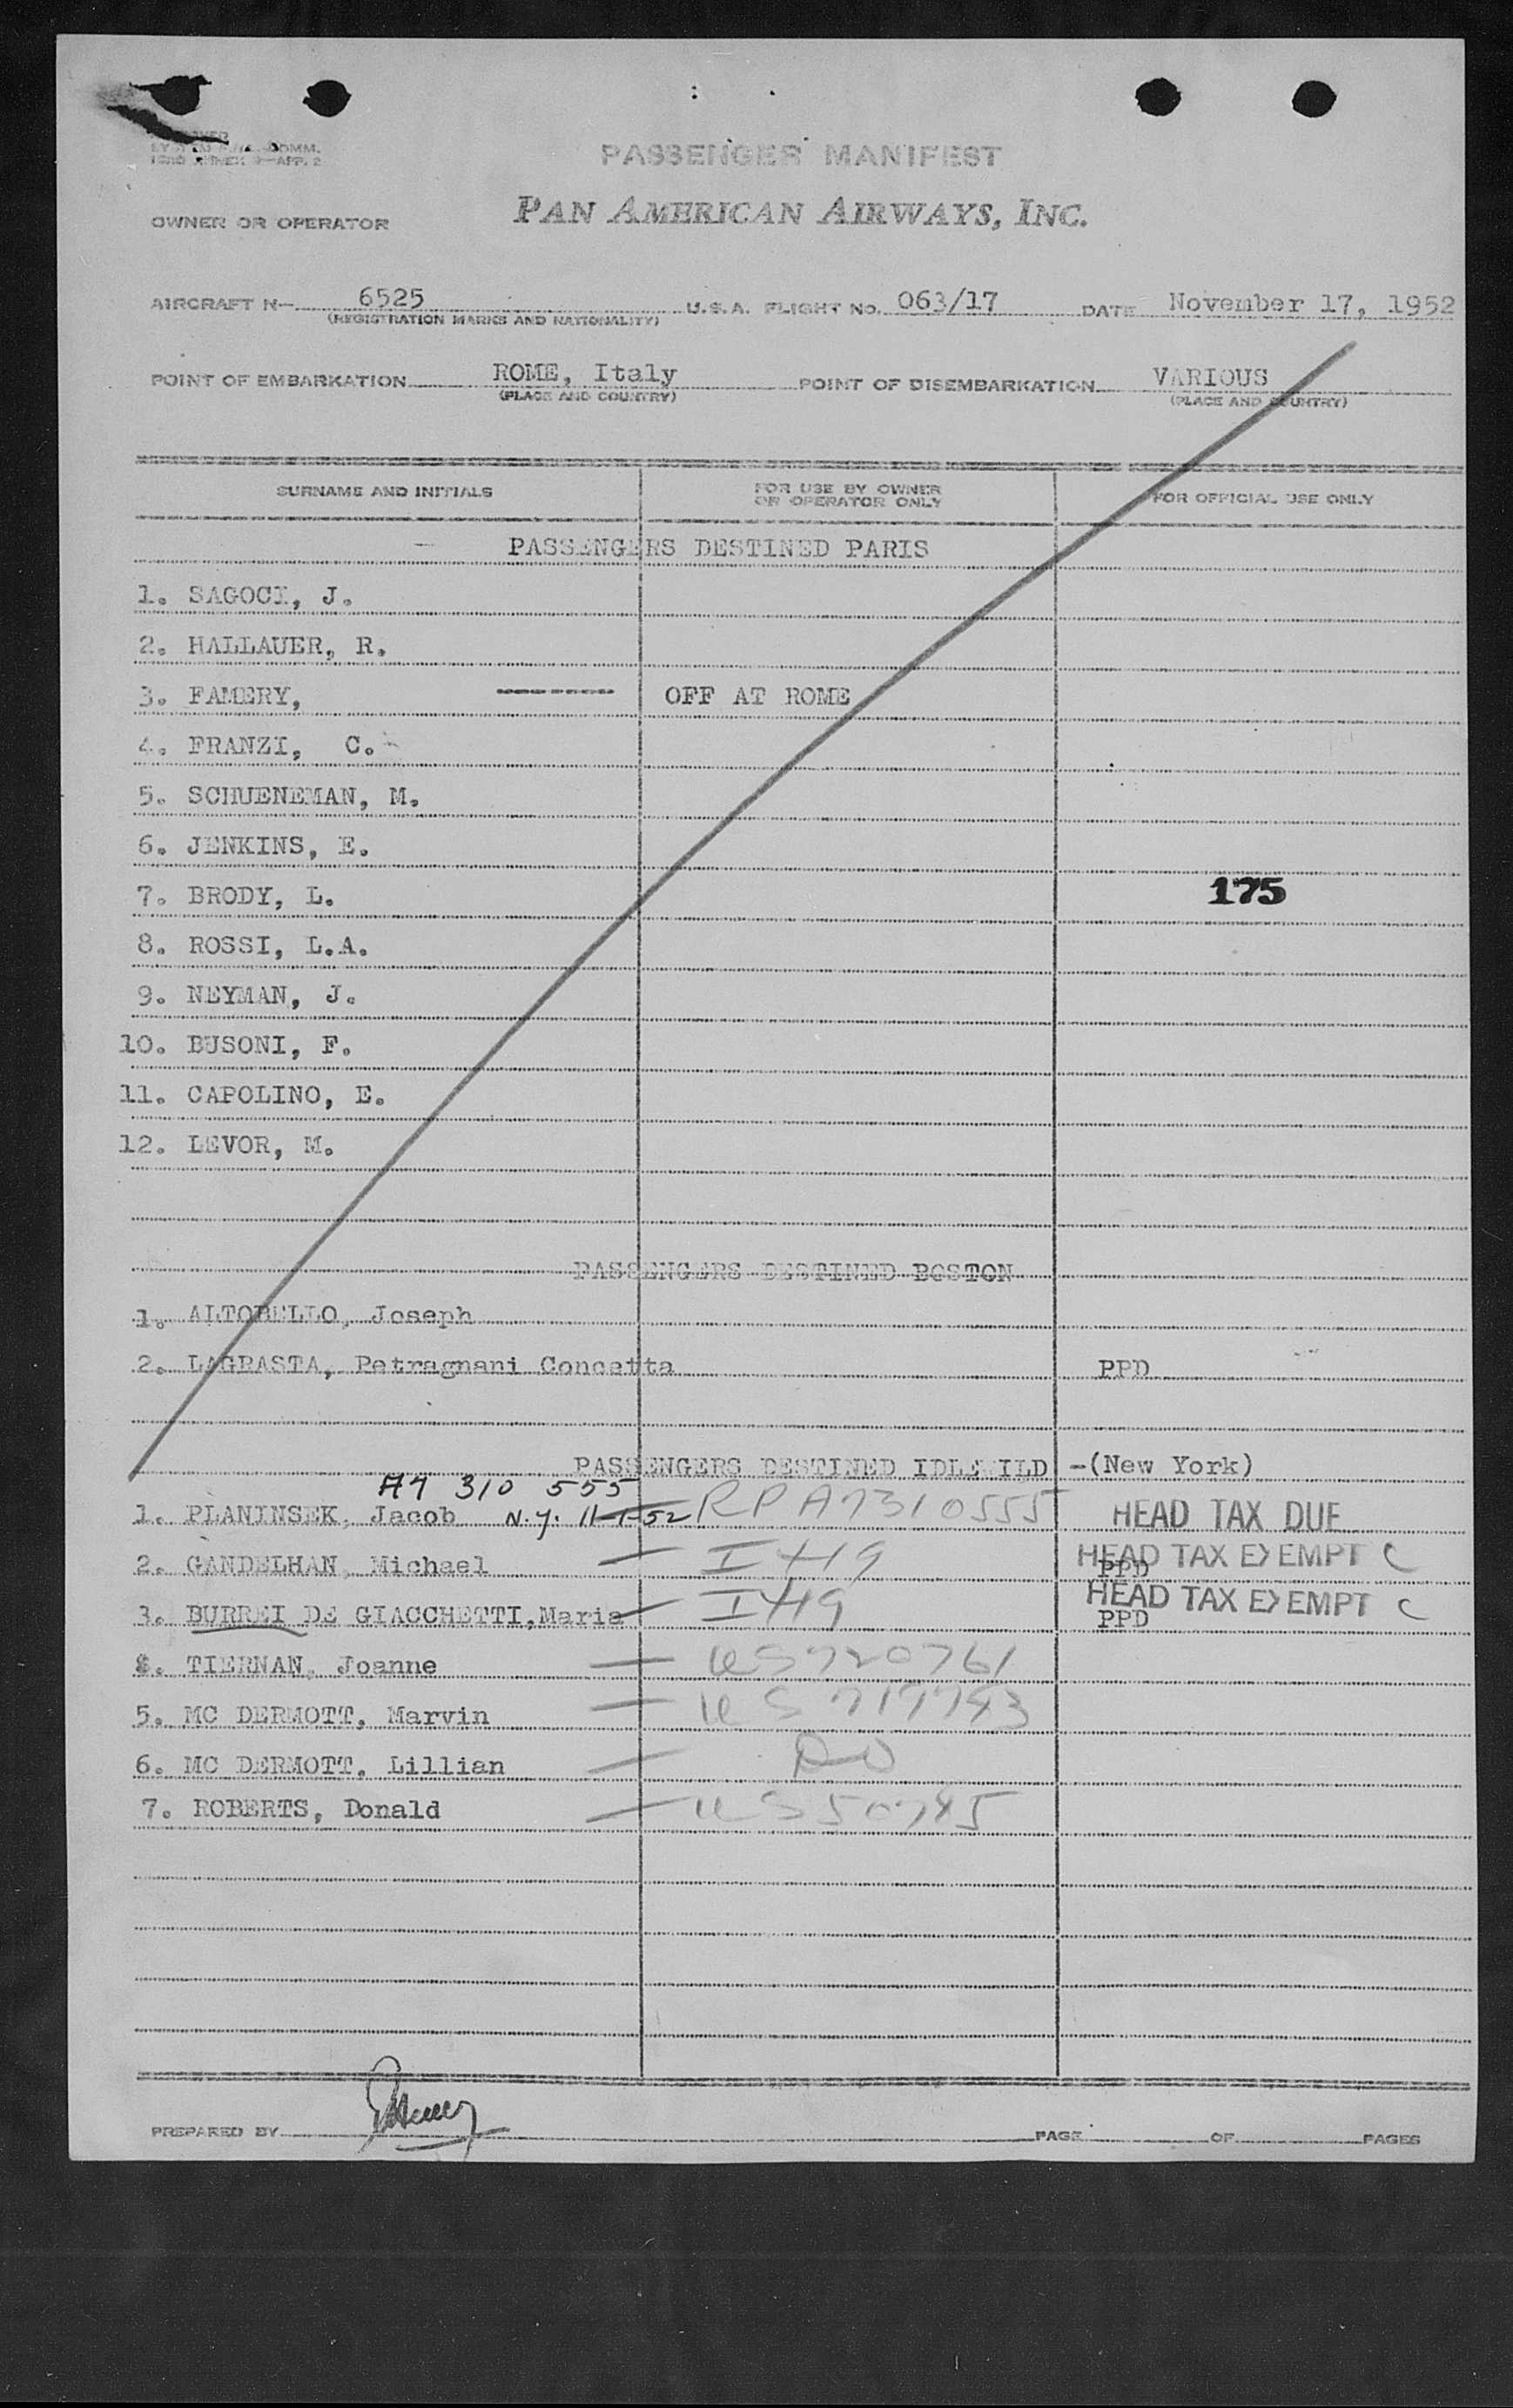 PASSENGER MANIFEST
OWNER OR OPERATOR PAN AMERICAN AIRWAYS, INC.
AIRCRAFT N— 6525 U.S.A. FLIGHT NO. 063/17 DATE November 17, 1952
(REGISTRATION MARKS AND NATIONALITY)
POINT OF EMBARKATION ROME, Italy POINT OF DISEMBARKATION VARIOUS
(PLACE AND COUNTRY) (PLACE AND COUNTRY)
SURNAME AND INITIALS FOR USE BY OWNER OR OPERATOR ONLY FOR OFFICIAL USE ONLY
PASSENGERS DESTINED PARIS
1. SAGOCI, J.
2. HALLAUER, R.
3. FAMERY, --------- OFF AT ROME
4. FRANZI, C.
5. SCHUENEMAN, M.
6. JENKINS, E.
7. BRODY, L. 175
8. ROSSI, L.A.
9. NEYMAN, J.
10. BUSONI, F.
11. CAPOLINO, E.
12. LEVOR, M.
PASSENGERS DESTINED BOSTON
1. ALTOBELLO, Joseph
2. LAGRASTA, Petragnani Concetta PPD
PASSENGERS DESTINED IDLEWILD -(New York)
A7 310 555
1. PLANINSEK, Jacob N.Y. RP A7310555 HEAD TAX DUE
2. GANDELHAN, Michael — I 419 HEAD TAX EXEMPT C
PPD
3. BURREI DE GIACCHETTI,Maria — I 419 HEAD TAX EXEMPT C
PPD
4. TIERNAN, Joanne — US 720761
5. MC DERMOTT, Marvin — US
6. MC DERMOTT, Lillian — DO
7. ROBERTS, Donald — US 50745
PREPARED BY PAGE OF PAGES